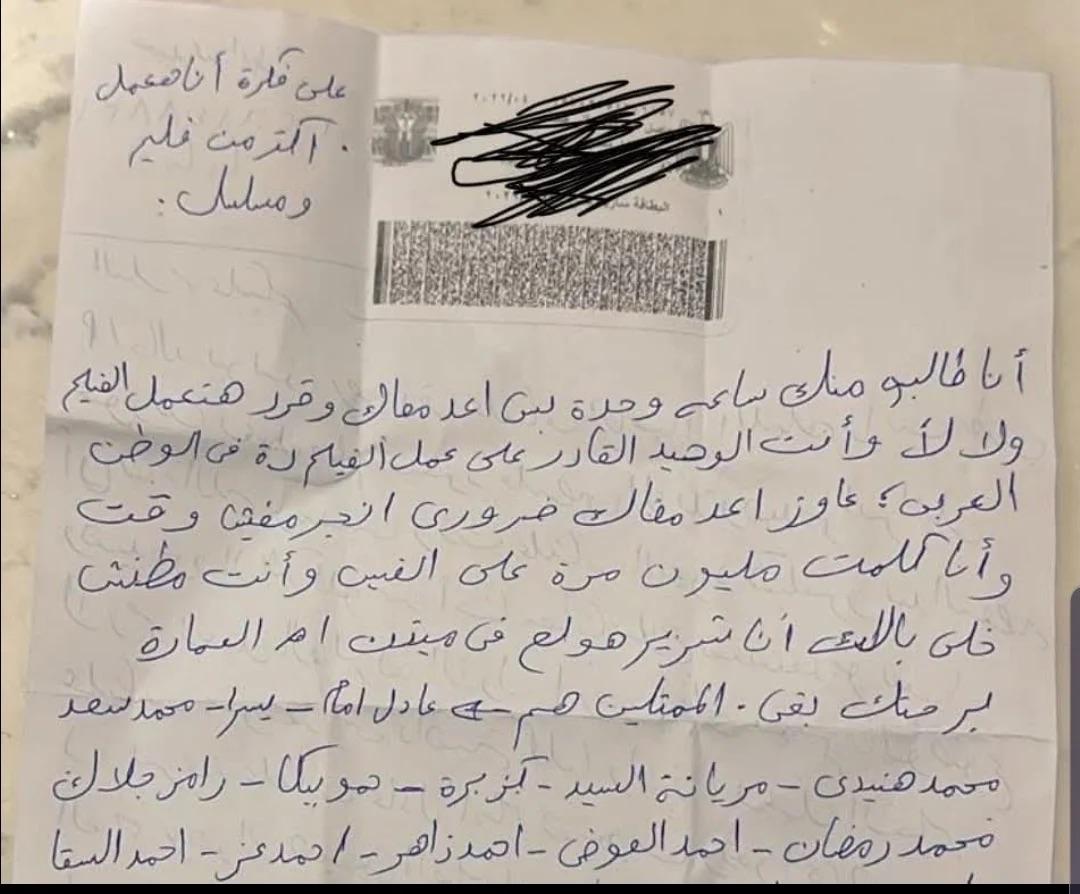 على فكرة أنا هعمل
أكتر من فليم
ومسلسل :
البطاقة سارية
أنا طالبو منك ساعه وحدة بس اعد معاك وقرر هتعمل الفيلم
ولا لأ وأنت الوحيد القادر على عمل الفيلم دة فى الوطن
العربى؛ عاوز اعد معاك ضرورى انجر مفيش وقت
وأنا كلمت مليون مرة على الفيس وأنت مطنش
خلى بالك أنا شرير هولع فى ميتين ام العمارة
بر منك بقى . الممثلين هم عادل امام - يسرا - محمد سعد
محمد هنيدى - مريانة السيد - كزبرة - حمو بيكا - رامز جلال
محمد رمضان - احمد العوضى - احمد زاهر - احمد عز - احمد السقا